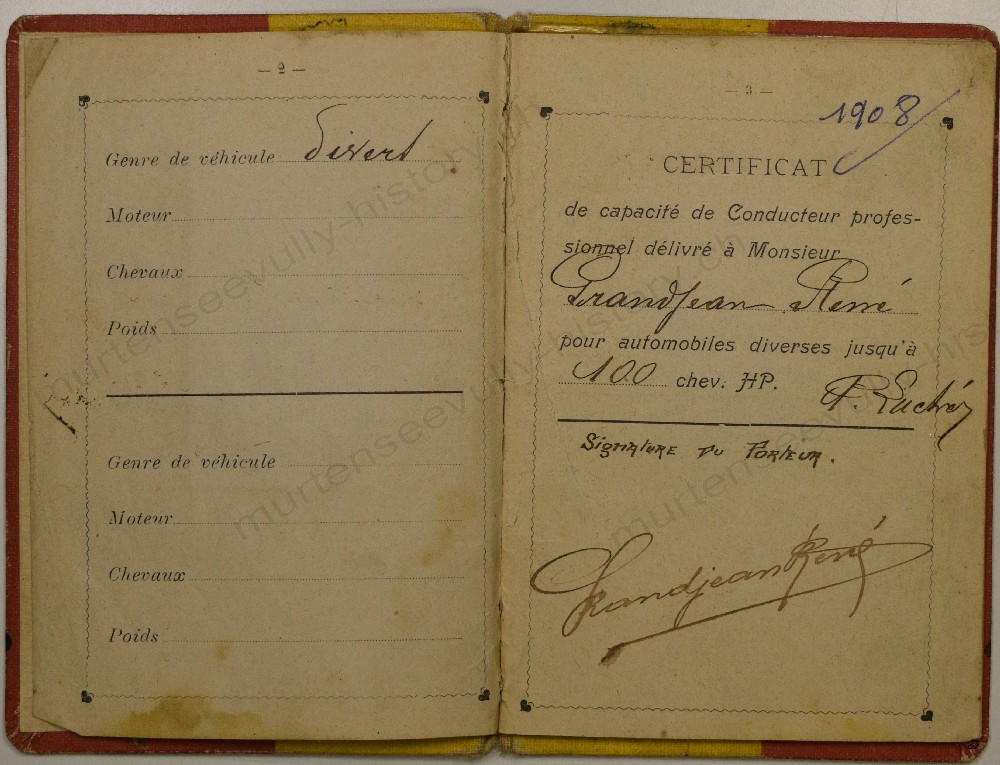 — 2 —
Genre de véhicule Divert
Moteur
Chevaux
Poids
Genre de véhicule
Moteur
Chevaux
Poids
— 3 —
1908
CERTIFICAT
de capacité de Conducteur profes-
sionnel délivré à Monsieur
Grandjean René
pour automobiles diverses jusqu'à
100 chev. HP.
Signature du Porteur.
Grandjean René
murtenseevully-history.ch
murtenseevully-history.ch
murtenseevully-history.ch